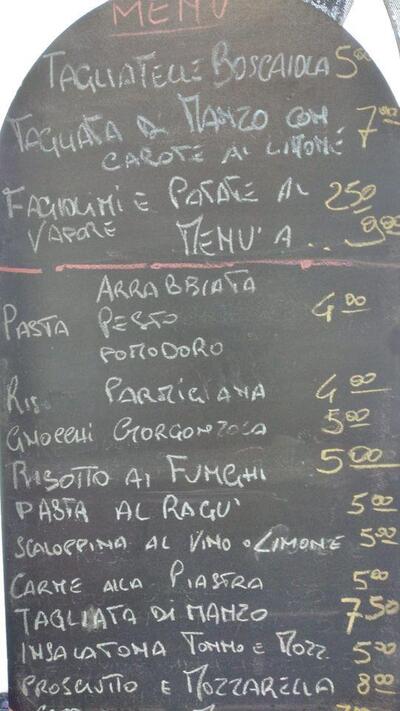 MENU
TAGLIATELLE BOSCAIOLA 5.00
TAGLIATA DI MANZO CON 7.00
CAROTE AL LIMONE
FAGIOLINI E PATATE AL 250
VAPORE MENU' A ... 9.00
ARRABBIATA
PASTA PESTO 4.00
POMODORO
RISO PARMIGIANA 4.00
GNOCCHI GORGONZOLA 5.00
RISOTTO AI FUNGHI 5.00
PASTA AL RAGU' 5.00
SCALOPPINA AL VINO o LIMONE 5.00
CARNE ALLA PIASTRA 5.00
TAGLIATA DI MANZO 7.50
INSALATONA TONNO E MOZZ 5.50
PROSCIUTTO E MOZZARELLA 8.00